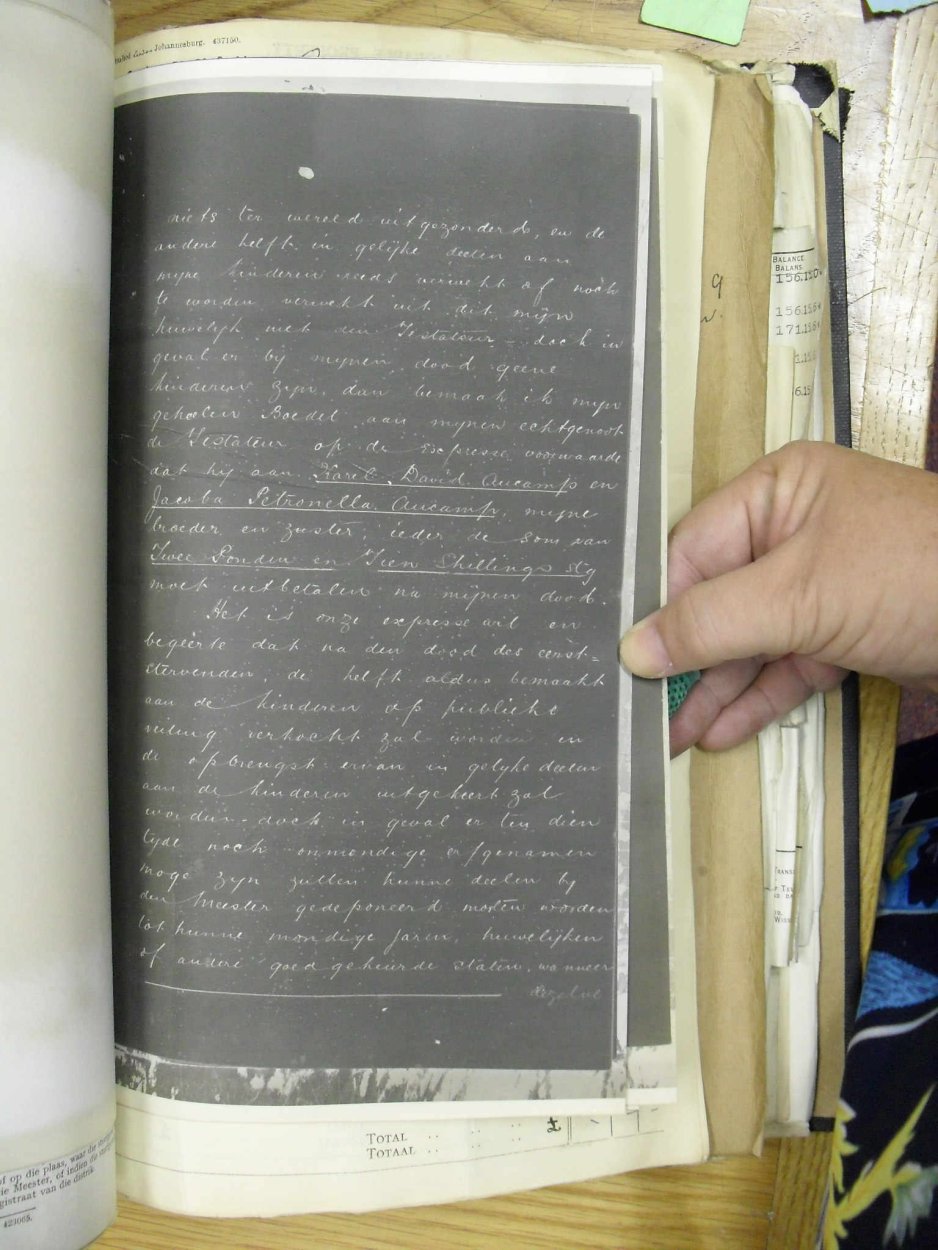 Johannesburg. 437150.
niets ter wereld uitgezonderd, en de
andere helft in gelijke deelen aan
mijne kinderen reeds verwekt of noch
te worden verwekt uit dit mijn
huwelijk met den Testateur – doch in
geval er bij mijnen dood geene
kinderen zijn, dan bemaak ik mijn
geheelen Boedel aan mijnen echtgenoot
de Testateur op de expresse voorwaarde
dat hij aan Karel David Aucamp en
Jacoba Petronella Aucamp, mijne
broeder en zuster, ieder de som van
Twee Ponden en Tien Shillings stg
moet uitbetalen na mijnen dood.
Het is onze expresse wil en
begeerte dat na den dood des eerst=
stervenden, de helft aldus bemaakt
aan de kinderen op publieke
veiling verkocht zal worden en
de opbrengst ervan in gelyke deelen
aan de kinderen uitgekeert zal
worden – doch in geval er ten dien
tyde noch onmondige erfgenamen
moge zyn zullen hunne deelen by
den Meester gedeponeerd moeten worden
tot hunne mondige jaren, huwelijken
of andere goed gekeurde staten, wanneer
dezelve
TOTAL .. .. £
TOTAAL ..
of op die plaas, waar die
die Meester, of indien die
gistraat van die distrik
423065.
BALANCE
BALANS
156.15.6
171.15.6
6.15